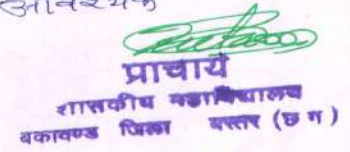 आवश्यक
प्राचार्य
शासकीय महाविद्यालय
बकावण्ड जिला बस्तर (छ ग)